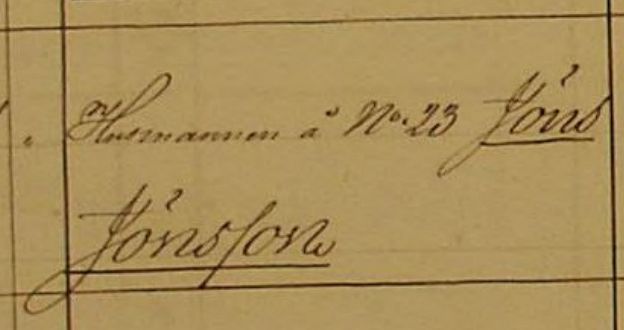 Husmannen å No. 23 Jöns
Jönsson